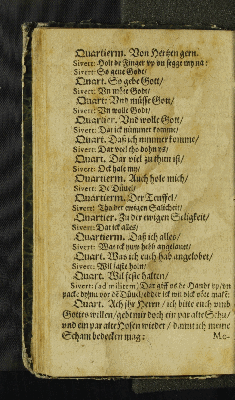 Quartierm. Von Hertzen gern.
Sivert: Holt de Finger up un segge my na:
Sivert: So geve Godt/
Quart. So gebe Gott/
Sivert: Un möte Godt/
Quart: Und müsse Gott/
Sivert: Un wolle Godt/
Quartier. Und wolle Gott/
Sivert: Dat ick nümmer komme/
Quart. Daß ich nimmer komme/
Sivert: Dar veel tho dohn ys/
Quart. Dar viel zu thun ist/
Sivert: Ock hale my/
Quartierm. Auch hole mich/
Sivert: De Düvel/
Quartierm. Der Teuffel/
Sivert: Tho der ewigen Salicheit/
Quartier. Zu der ewigen Seligkeit/
Sivert: Dat ick alles/
Quartierm. Daß ich alles/
Sivert: Wat ick juw hebb angelavet/
Quart. Was ich euch hab angelobet/
Sivert: Wil faste holn/
Quart. Wil feste halten/
Sivert: (ad militem) Dar giff us de Handt up/un
pack dy
Quart. Ach ihr Herrn/ ich bitte euch umb
Gottes willen/gebt mir doch ein par alte Schu/
und ein par alte Hosen wieder/ damit ich meine
Scham bedecken mag:
Me-